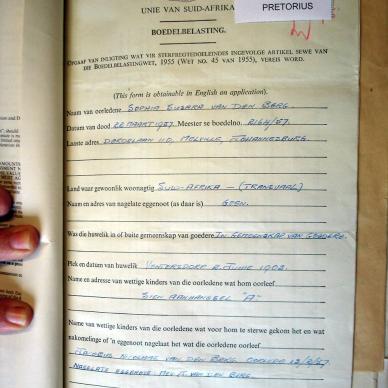 UNIE VAN SUID-AFRIKA
PRETORIUS
BOEDELBELASTING.
OPGAAF VAN INLIGTING WAT VIR STERFREGTEDOELEINDES INGEVOLGE ARTIKEL SEWE VAN
DIE BOEDELBELASTINGWET, 1955 (WET NO. 45 VAN 1955), VEREIS WORD.
(This form is obtainable in English on application).
Naam van oorledene SOPHIA SUSARA VAN DEN BERG
Datum van dood 22 MAART 1957. Meester se boedelno. 2164/57.
Laaste adres DERDELAAN 110, MELVILLE, JOHANNESBURG
Land waar gewoonlik woonagtig SUID-AFRIKA - (TRANSVAAL)
Naam en adres van nagelate eggenoot (as daar is) GEEN.
Was die huwelik in of buite gemeenskap van goedere IN GEMEENSKAP VAN GOEDERE.
Plek en datum van huwelik VENTERSDORP 2 JUNIE 1902.
Name en adresse van wettige kinders van die oorledene wat hom oorleef
SIEN AANHANGSEL "A"
Name van wettige kinders van die oorledene wat voor hom te sterwe gekom het en wat
nakomelinge of 'n eggenoot nagelaat het wat die oorledene oorleef
JACOBUS NICOLAAS VAN DEN BERG OORLEDE
NAGELATE EGGENOTE: MEV. VAN DEN BERG